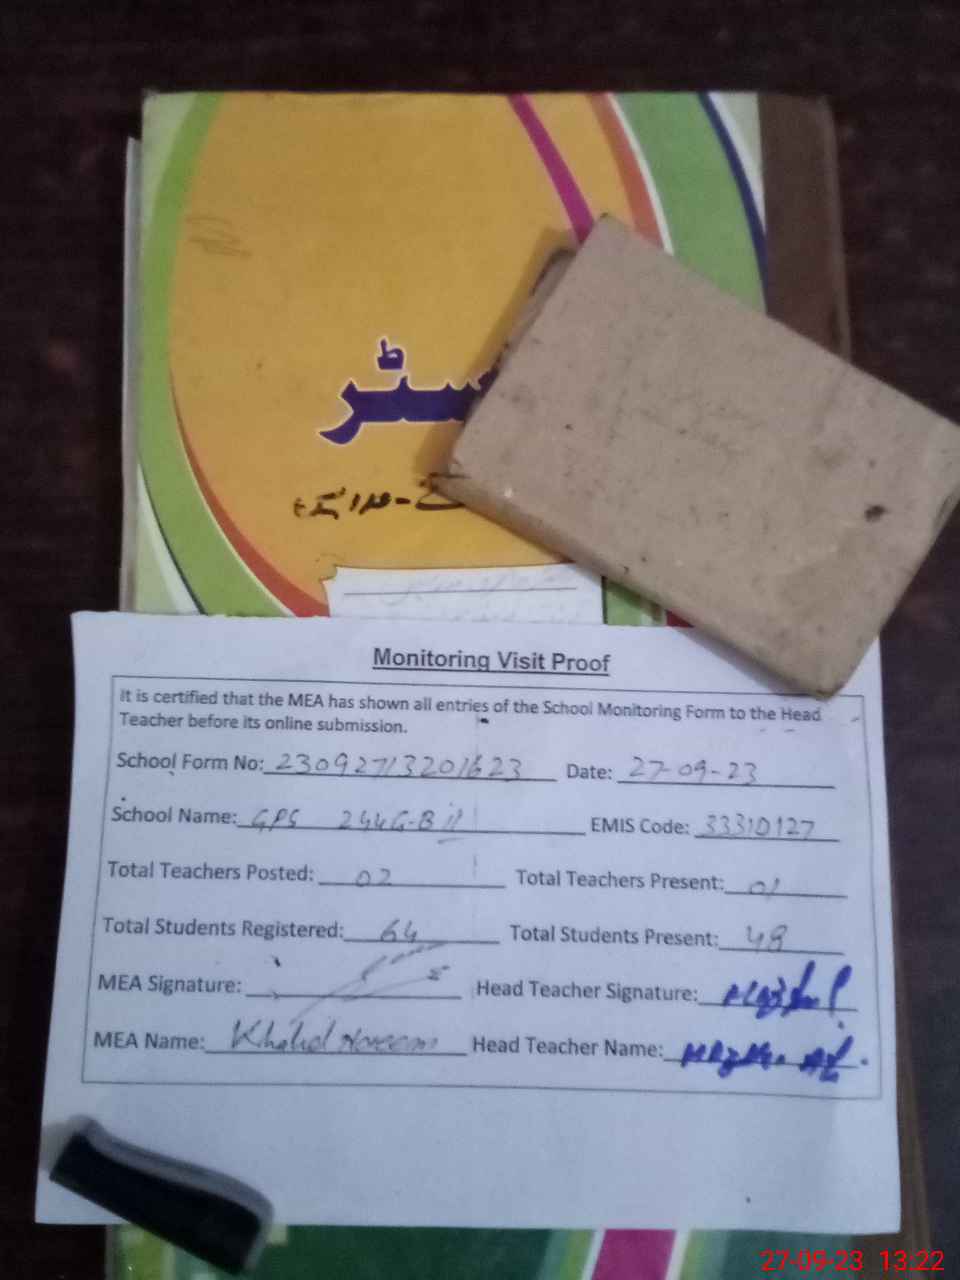 Monitoring Visit Proof
It is certified that the MEA has shown all entries of the School Monitoring Form to the Head
Teacher before its online submission.
School Form No: 23092713201623 Date: 27-09-23
School Name: GPS 244 G-B II EMIS Code: 33310127
Total Teachers Posted: 02 Total Teachers Present: 01
Total Students Registered: 64 Total Students Present: 48
MEA Signature: Head Teacher Signature:
MEA Name: Khalid Naeem Head Teacher Name:
27-09-23 13:22